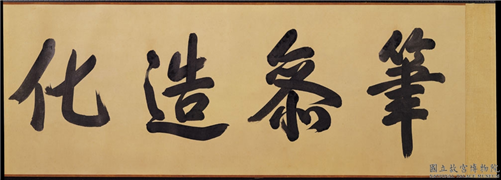 筆參造化
國立故宮博物院